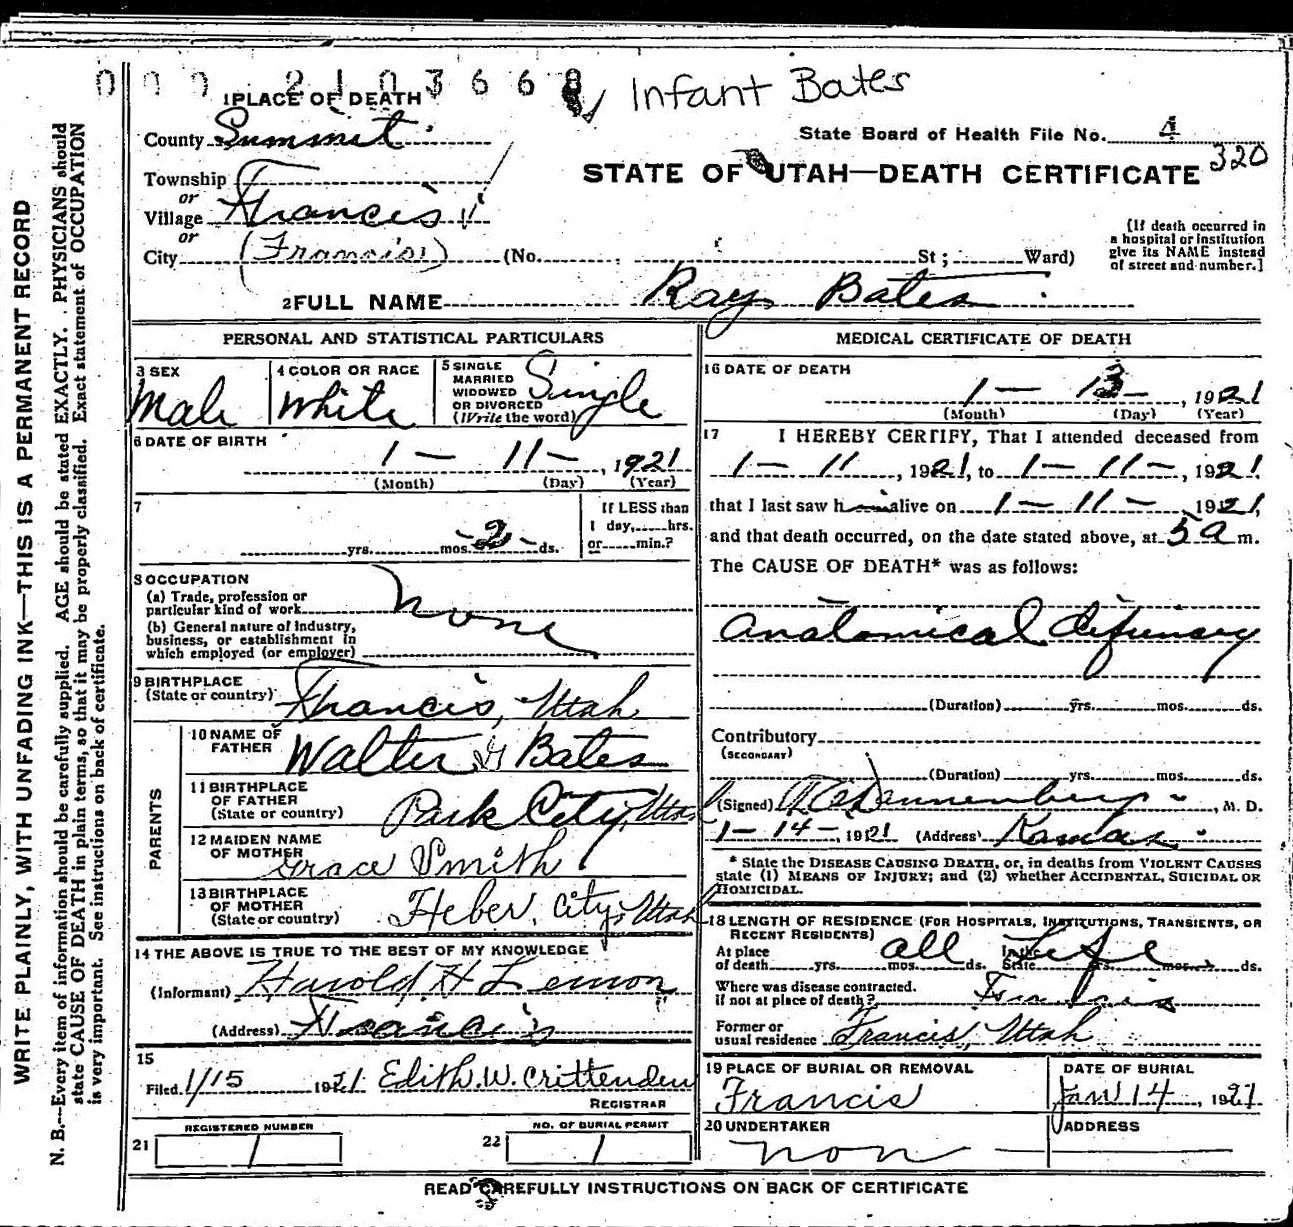 0 0 0 2 1 0 3 6 6 8
Infant Bates
1 PLACE OF DEATH
County Summit
State Board of Health File No. 4
320
STATE OF UTAH—DEATH CERTIFICATE
Township
or
Village Francis
or
City (Francis) (No. St; Ward)
[If death occurred in
a hospital or institution
give its NAME instead
of street and number.]
2 FULL NAME Ray Bates
PERSONAL AND STATISTICAL PARTICULARS
3 SEX
Male
4 COLOR OR RACE
White
5 SINGLE
MARRIED
WIDOWED
OR DIVORCED
(Write the word)
Single
6 DATE OF BIRTH
1 — 11 —, 1921
(Month) (Day) (Year)
7
yrs. mos. 2 ds.
If LESS than
1 day, hrs.
or min.?
8 OCCUPATION
(a) Trade, profession or
particular kind of work
(b) General nature of industry,
business, or establishment in
which employed (or employer)
none
9 BIRTHPLACE
(State or country)
Francis, Utah
PARENTS
10 NAME OF
FATHER
Walter Bates
11 BIRTHPLACE
OF FATHER
(State or country)
Park City, Utah
12 MAIDEN NAME
OF MOTHER
Grace Smith
13 BIRTHPLACE
OF MOTHER
(State or country)
Heber City, Utah
14 THE ABOVE IS TRUE TO THE BEST OF MY KNOWLEDGE
(Informant) Harold H Lemon
(Address) Francis
15
Filed 1/15 1921 Edith W. Crittenden
REGISTRAR
21
REGISTERED NUMBER
1
22
NO. OF BURIAL PERMIT
1
MEDICAL CERTIFICATE OF DEATH
16 DATE OF DEATH
1 — 13 —, 1921
(Month) (Day) (Year)
17 I HEREBY CERTIFY, That I attended deceased from
1 — 11, 1921, to 1 — 11 —, 1921
that I last saw h im alive on 1 — 11 — 1921,
and that death occurred, on the date stated above, at 5 a m.
The CAUSE OF DEATH* was as follows:
Anatomical
(Duration) yrs. mos. ds.
Contributory
(SECONDARY)
(Duration) yrs. mos. ds.
(Signed) , M. D.
1 — 14 —, 1921 (Address) Kamas
* State the DISEASE CAUSING DEATH, or, in deaths from VIOLENT CAUSES
state (1) MEANS OF INJURY; and (2) whether ACCIDENTAL, SUICIDAL OR
HOMICIDAL.
18 LENGTH OF RESIDENCE (FOR HOSPITALS, INSTITUTIONS, TRANSIENTS, OR
RECENT RESIDENTS)
At place
of death yrs. mos. ds. In the State yrs. mos. ds.
all Life
Where was disease contracted.
if not at place of death? Francis
Former or
usual residence Francis, Utah
19 PLACE OF BURIAL OR REMOVAL
Francis
DATE OF BURIAL
Jan 14, 1921
20 UNDERTAKER
non
ADDRESS
READ CAREFULLY INSTRUCTIONS ON BACK OF CERTIFICATE
WRITE PLAINLY, WITH UNFADING INK—THIS IS A PERMANENT RECORD
N. B.—Every item of information should be carefully supplied. AGE should be stated EXACTLY. PHYSICIANS should
state CAUSE OF DEATH in plain terms, so that it may be properly classified. Exact statement of OCCUPATION
is very important. See instructions on back of certificate.